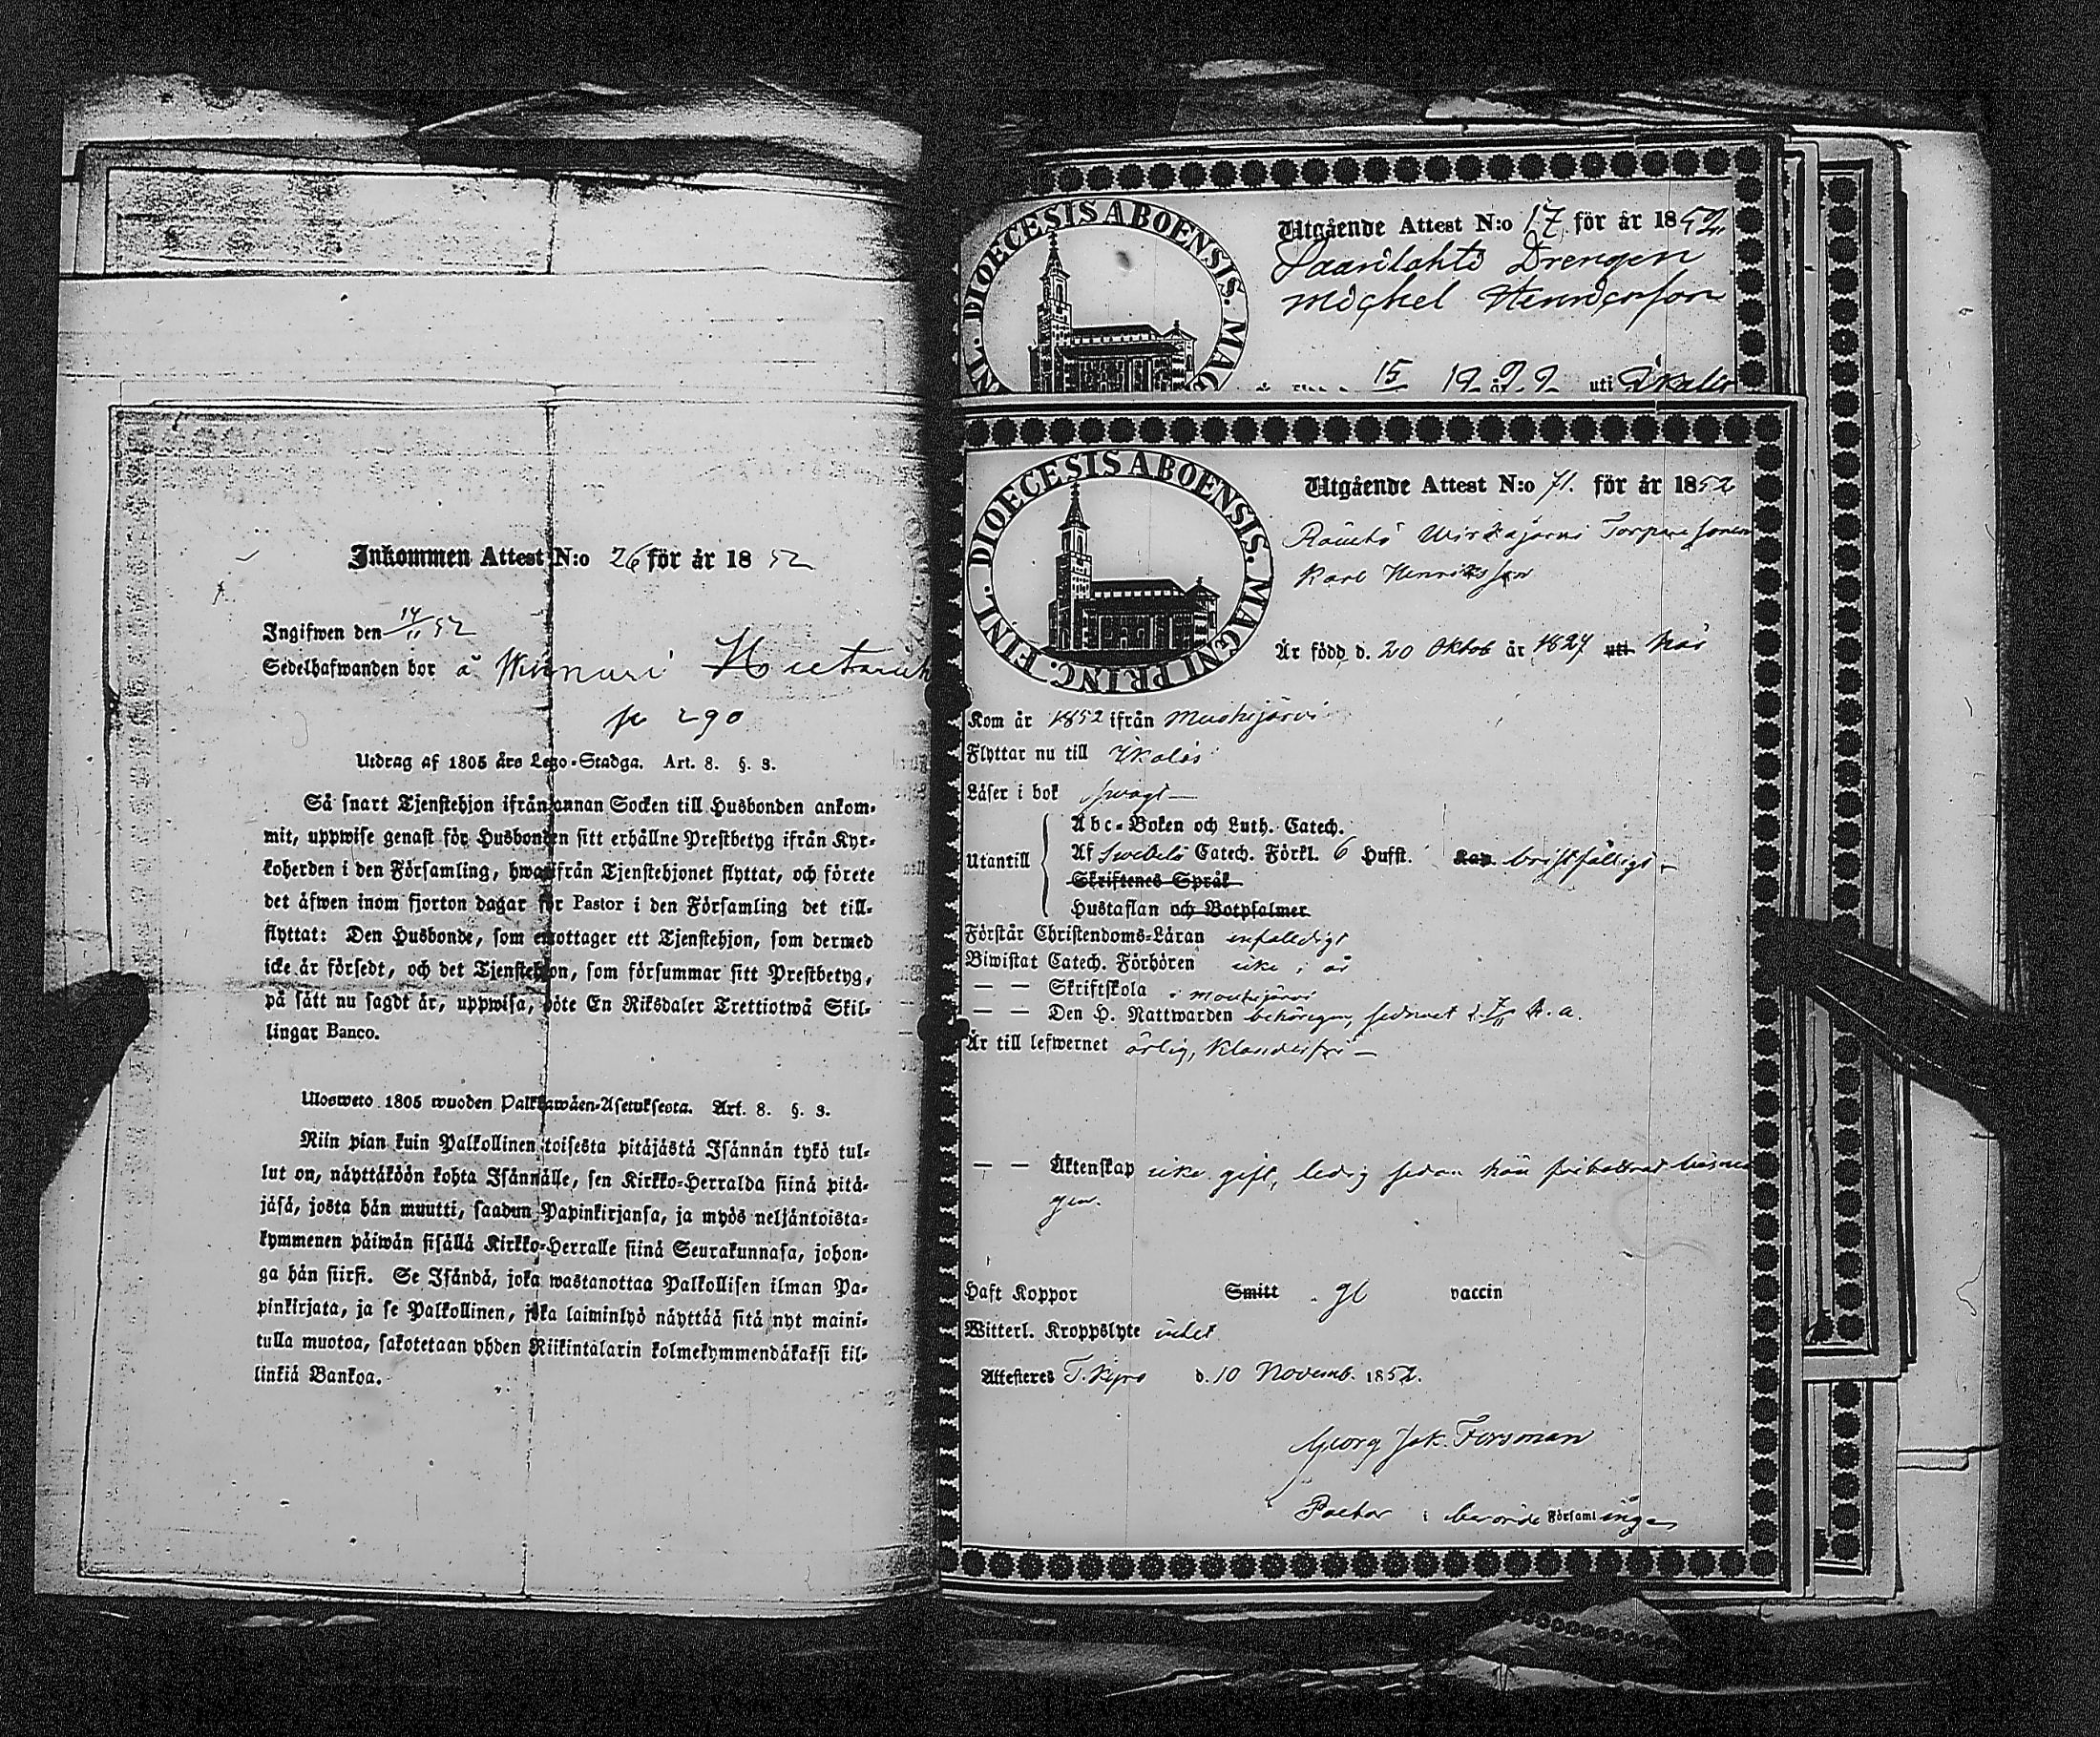 Inkommen Attest N:o 26 för år 1852
Ingifwen den 14/11 52
Sedelhafwanden bor å
p 290
Utdrag af 1805 års Lego-Stadga. Art. 8. §. 3.
Så snart Tjenstehjon ifrån annan Socken till Husbonden ankom-
mit, uppwise genast för Husbonden sitt erhållne Prestbetyg ifrån Kyr-
koherden i den Församling, hwarifrån Tjenstehjonet flyttat, och förete
det äfwen inom fjorton dagar för Pastor i den Församling det till-
flyttat: Den Husbonde, som emottager ett Tjenstehjon, som dermed
icke är försedt, och det Tjenstehjon, som försummar sitt Prestbetyg,
på sätt nu sagdt är, uppwisa, böte En Riksdaler Trettiotwå Skil-
lingar Banco.
Ulosweto 1805 wuoden Palkkawäen-Asetuksesta. Art. 8. §. 3.
Niin pian kuin Palkollinen toisesta pitäjästä Isännän tykö tul-
lut on, näyttäköön kohta Isännälle, sen Kirkko-Herralda siinä pitä-
jäsä, josta hän muutti, saadun Papinkirjansa, ja myös neljäntoista-
kymmenen päiwän sisällä Kirkko-Herralle siinä Seurakunnasa, johon-
ga hän siirsi. Se Isändä, joka wastanottaa Palkollisen ilman Pa-
pinkirjata, ja se Palkollinen, joka laiminlyö näyttää sitä nyt maini-
tulla muotoa, sakotetaan yhden Riikintalarin kolmekymmendäkaksi kil-
linkiä Bankoa.
DIOECESIS ABOENSIS. MAG
NL.
Utgående Attest N:o 17 för år 1852.
Drengen
Michel Henricsson
15 12 22 uti Ikalis
DIOECESIS ABOENSIS. MAGNI PRINC. FINL.
Utgående Attest N:o 71. för år 1852
Torparesonen
Karl Henriksson
Är född d. 20 Oktob år 1827 uti här
Kom år 1852 ifrån Mouhijärvi
Flyttar nu till Ikalis
Läser i bok swagt
Utantill
Abc-Boken och Luth. Catech.
Af Swebelii Catech. Förkl. 6 Hufst. Kap. bristfälligt
Skriftenes Språk
Hustaflan och Botpsalmer
Förstår Christendoms-Läran enfaldigt
Biwistat Catech. Förhören icke i år
— — Skriftskola i Mouhijärvi
— — Den H. Nattwarden behörigen, sednast d. 7/11 h. a.
Är till lefwernet ärlig, klanderfri
— — Äktenskap icke gift, ledig sedan
gen.
Haft Koppor Smitt gl vaccin
Witterl. Kroppslyte intet
Attesteres T. Kyro d. 10 Novemb. 1852.
Georg Jak. Forsman
Pastor i berörde Församlingen